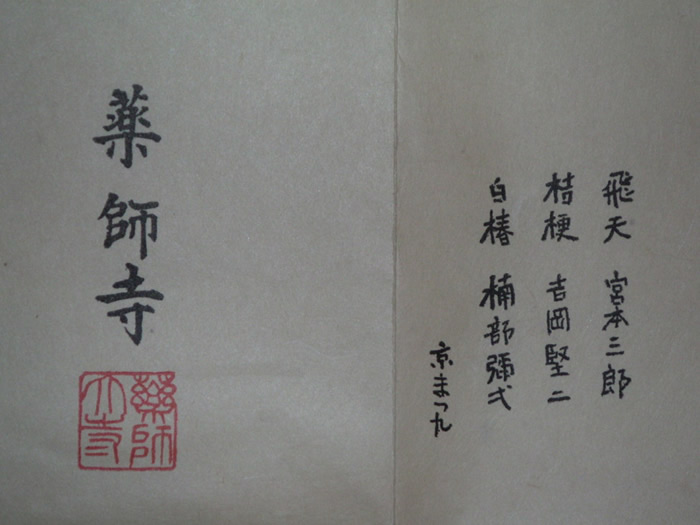 飛天 宮本三郎
桔梗 吉岡堅二
白椿 楠部彌弌
京まつ九
薬師寺
薬師寺